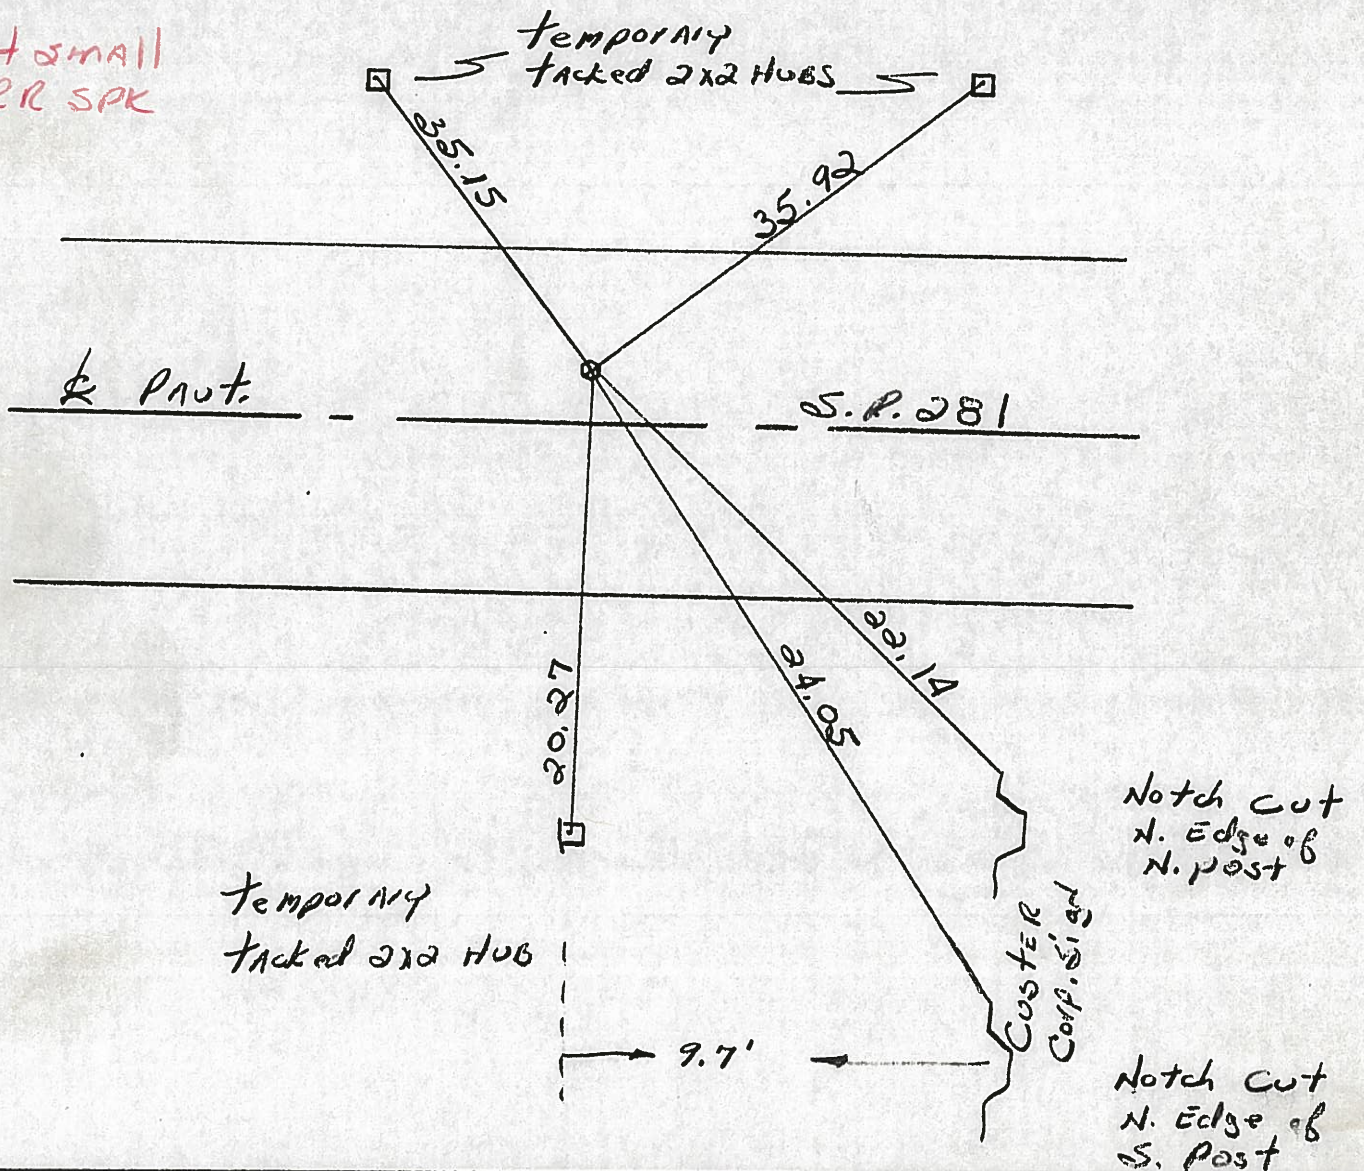 t small
R SPK
temporary
tacked 2x2 HUBS
35.15
35.92
℄ Pavt.
S.R. 281
20.27
24.05
22.14
Notch Cut
N. Edge of
N. post
temporary
tacked 2x2 HUB
CUSTER
Corp. Sign
9.7'
Notch Cut
N. Edge of
S. Post